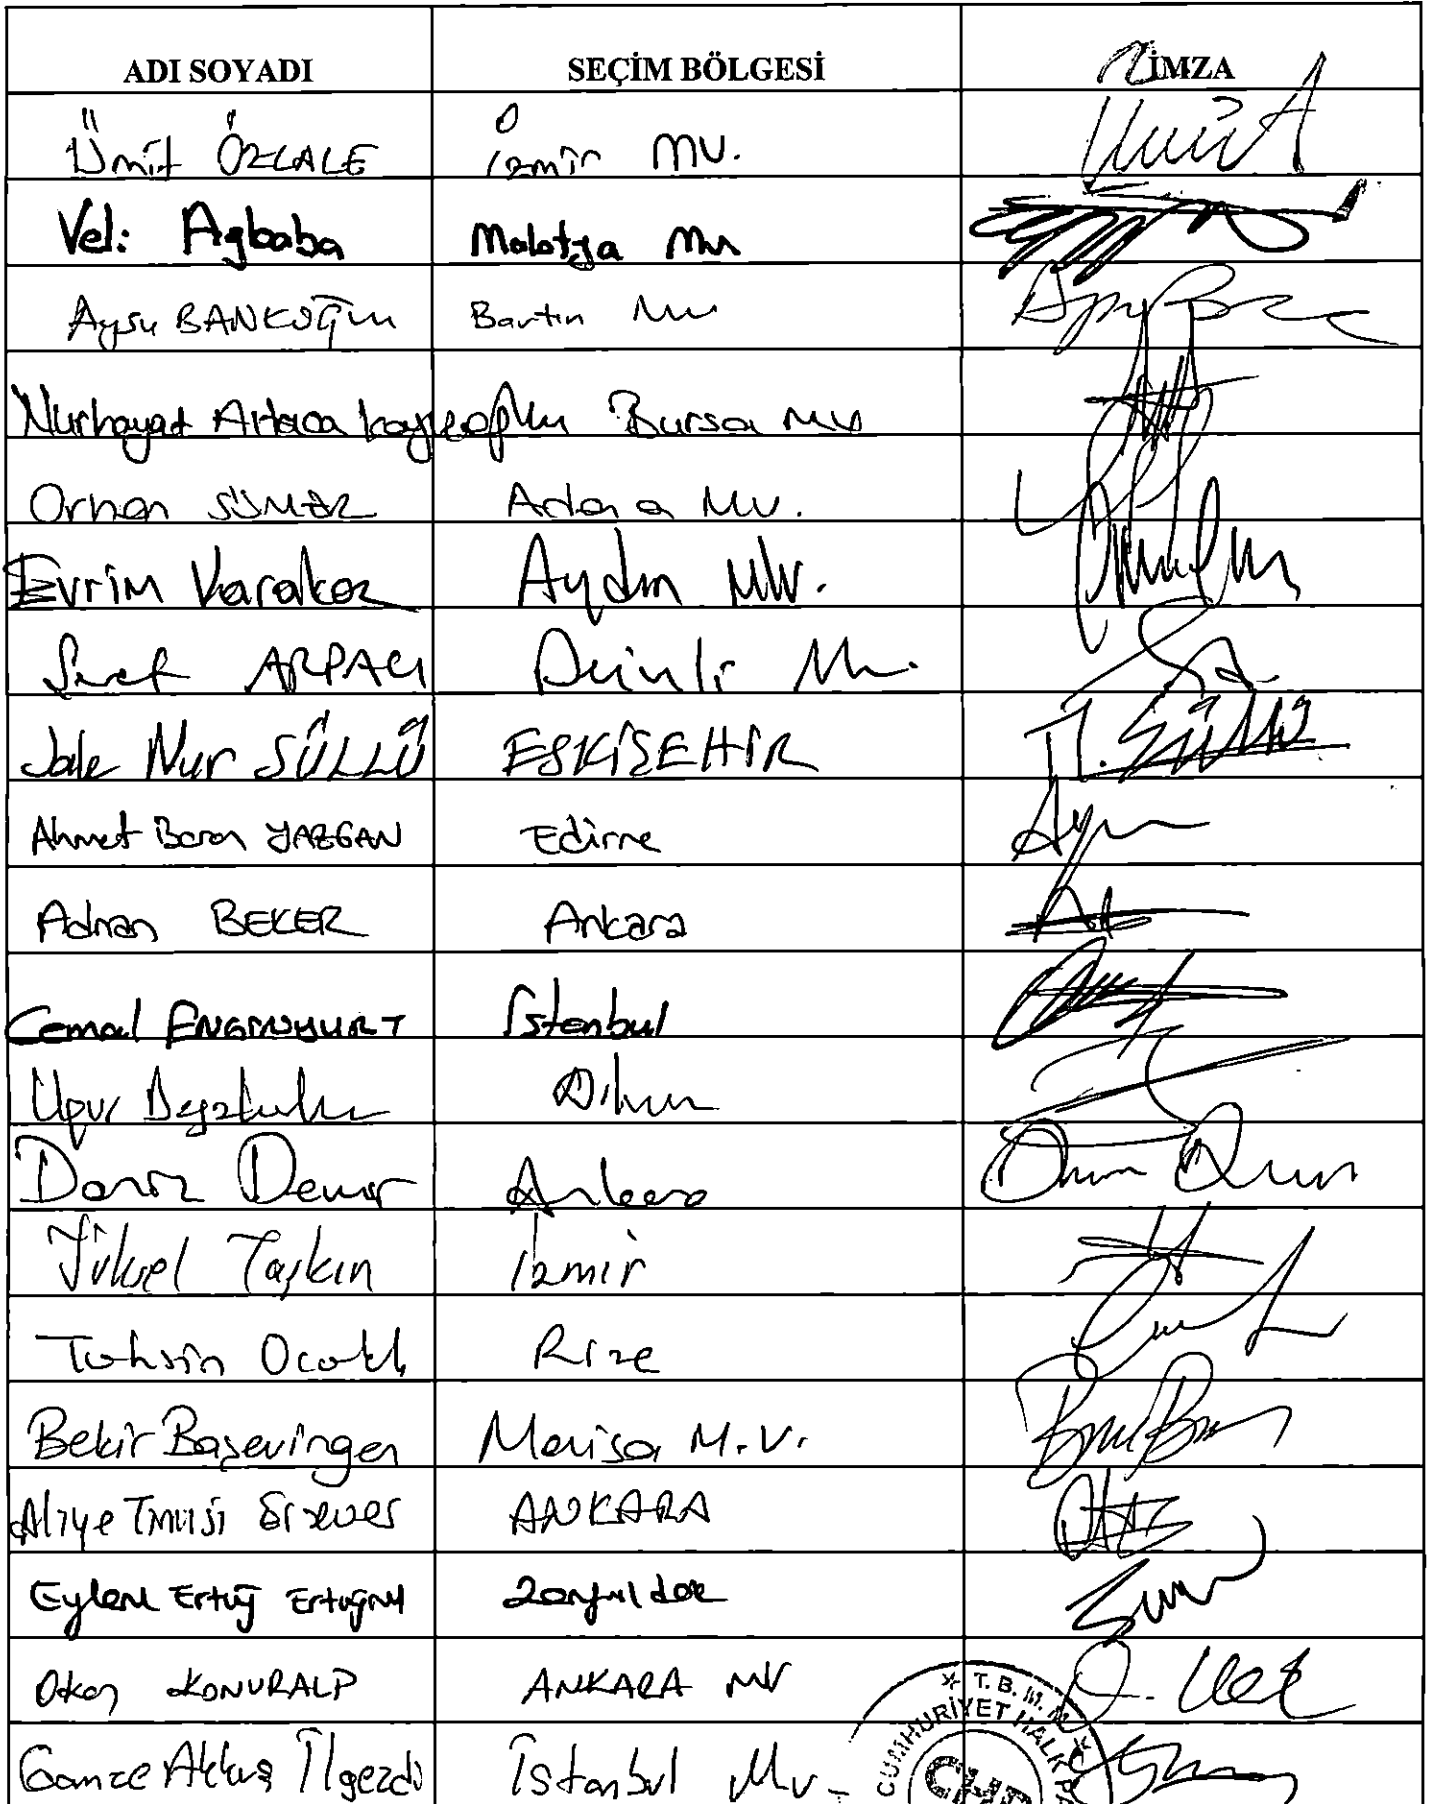 ADI SOYADI SEÇİM BÖLGESİ İMZA
Ümit ÖZLALE İzmir MV.
Veli Ağbaba Malatya Mv
Aysu BANKOĞLU Bartın Mv
Nurhayat Altaca Kayışoğlu Bursa MV
Orhan SÜMER Adana MV.
Evrim Karakoz Aydın MV.
Şeref ARPACI Denizli Mv.
Jale Nur SÜLLÜ ESKİŞEHİR J.N. SÜLLÜ
Ahmet Baran YAZGAN Edirne
Adnan BEKER Ankara
Cemal ENGİNYURT İstanbul
Uğur Bayraktutan
Deniz Demir Ankara
Yüksel Taşkın İzmir
Tahsin Ocaklı Rize
Bekir Başevirgen Manisa M.V.
Aliye Timisi Ersever ANKARA
Eylem Ertuğ Ertuğrul Zonguldak
Okan KONURALP ANKARA MV
Gamze Akkuş İlgezdi İstanbul Mv.
T.B.M.M.
CUMHURİYET HALK PA
CHP